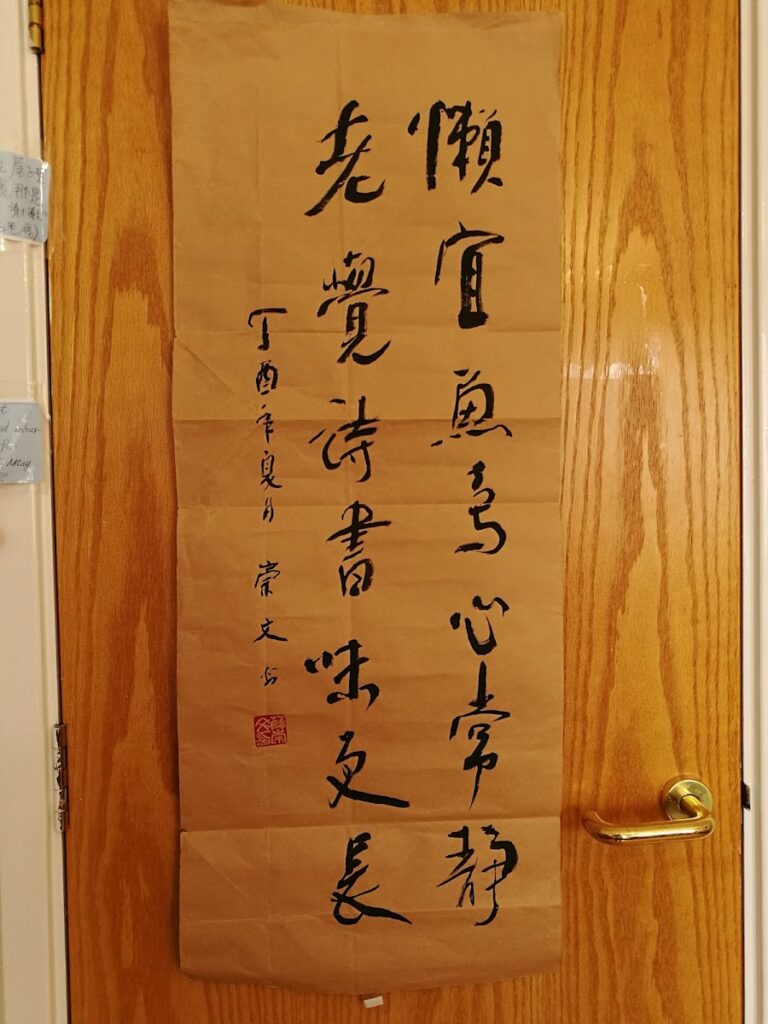 懶宜魚鳥心常靜
老覺詩書味更長
丁酉年夏月 崇文书